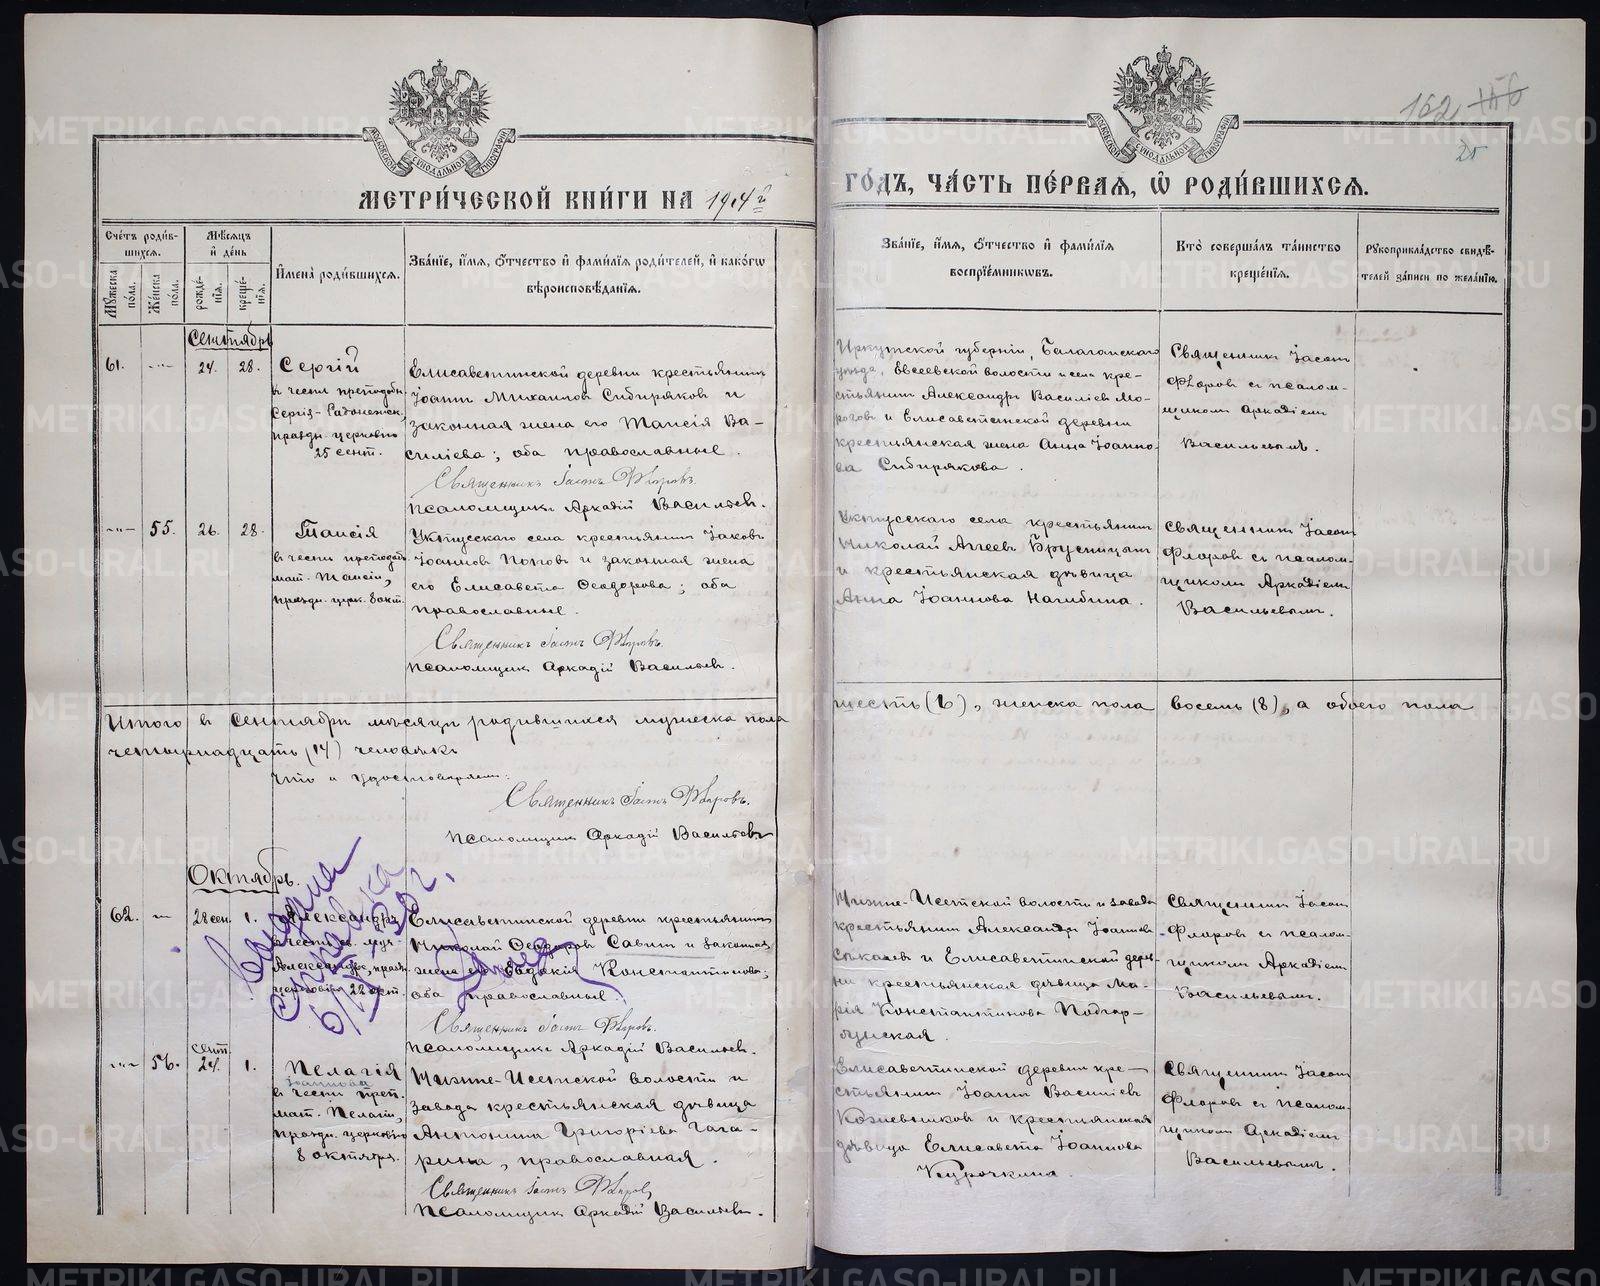 162 156
25
МЕТРИ́ЧЕСКОЙ КНИ́ГИ НА 1914й
ГО́ДЪ, ЧА́СТЬ ПЕ́РВАЯ, Ѽ РОДИ́ВШИХСЯ.
Сче́тъ роди́вшихся.
Мѣ́сяцъ и де́нь
И҆мена̀ роди́вшихся.
Зва́нїе, и҆́мя, ѻ҆́тчество и҆ фами́лїя роди́телей, и҆ како́гѡ
вѣроисповѣ́данїя.
Му́жеска по́ла.
Же́нска по́ла.
рожде́нїя.
креще́нїя.
Зва́нїе, и҆́мя, ѻ҆́тчество и҆ фами́лїя
воспрїе́мникѡвъ.
Кто̀ соверша́лъ та́инство
креще́нїя.
Рꙋкоприкла́дство свидѣ́-
телей за́писи по жела́нїю.
Сентябрь
61. -„- 24. 28. Сергій
в честь преподобн.
Сергія-Радонежск.,
праздн. церковно
25 сент.
Елисаветинской деревни крестьянин
Іоанн Михаилов Сибиряков и
законная жена его Таисія Ва-
силіева; оба православные.
Священникъ Іасонъ Флоровъ.
Псаломщикъ Аркадій Васильев.
Иркутской губерніи, Балаганского
уезда, Евсеевской волости и села кре-
стьянин Александр Василіев Мо-
рогов и Елисаветинской деревни
крестьянская жена Анна Іоанно-
ва Сибирякова.
Священник Іасон
Флоров с псалом-
щиком Аркадіем
Васильевым.
-„- 55. 26. 28. Таисія
в честь преподоб.
мат. Таисіи,
праздн. церк. 8 окт.
Уктусского села крестьянин Іаков
Іоаннов Попов и законная жена
его Елисавета Феодорова; оба
православные.
Священникъ Іасонъ Флоровъ.
Псаломщик Аркадій Васильев.
Уктусского села крестьянин
Николай Аггеев Брусницын
и крестьянская дѣвица
Анна Іоаннова Нагибина.
Священник Іасон
Флоров с псалом-
щиком Аркадіем
Васильевым.
Итого в сентябрѣ мѣсяцѣ родившихся мужеска пола
шесть (6), женска пола восемь (8), а обоего пола
четырнадцать (14) человѣкъ
Что и удостоверяем:
Священникъ Іасонъ Флоровъ.
Псаломщик Аркадій Васильевъ
Октябрь.
62. -„- 28 сен. 1. Александръ
в честь св. муч-
Александра, празд.
церковно 28 сент.
Елисаветинской деревни крестьянин
Николай Феодоров Савин и законная
жена его Евдокія Константинова;
оба православные.
Священникъ Іасонъ Флоровъ.
Псаломщикъ Аркадій Васильев.
Нижне-Исетской волости и завода
крестьянин Александр Іоаннов
Соколов и Елисаветинской дерев-
ни крестьянская дѣвица Ма-
рія Константинова Подкор-
Священник Іасон
Флоров с псалом-
щиком Аркадіем
Васильевым.
Выдана
справка
-„- 56. сент. 24. 1. Пелагія
Іоаннова
в честь преп.
мат. Пелагіи,
праздн. церковно
8 октября.
Нижне-Исетской волости и
завода крестьянская дѣвица
Антонина Григоріева Гага-
рина, православная.
Священникъ Іасонъ Флоров
Псаломщик Аркадій Васильев.
Елисаветинской деревни кре-
стьянин Іоанн Василіев
Кожевников и крестьянская
дѣвица Елисавета Іоаннова
Курочкина.
Священник Іасон
Флоров с псалом-
щиком Аркадіем
Васильевым.
METRIKI.GASO-URAL.RU